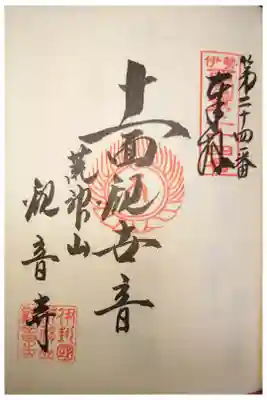 第二十四番
奉拝
十一面観世音
荒神山
観音寺